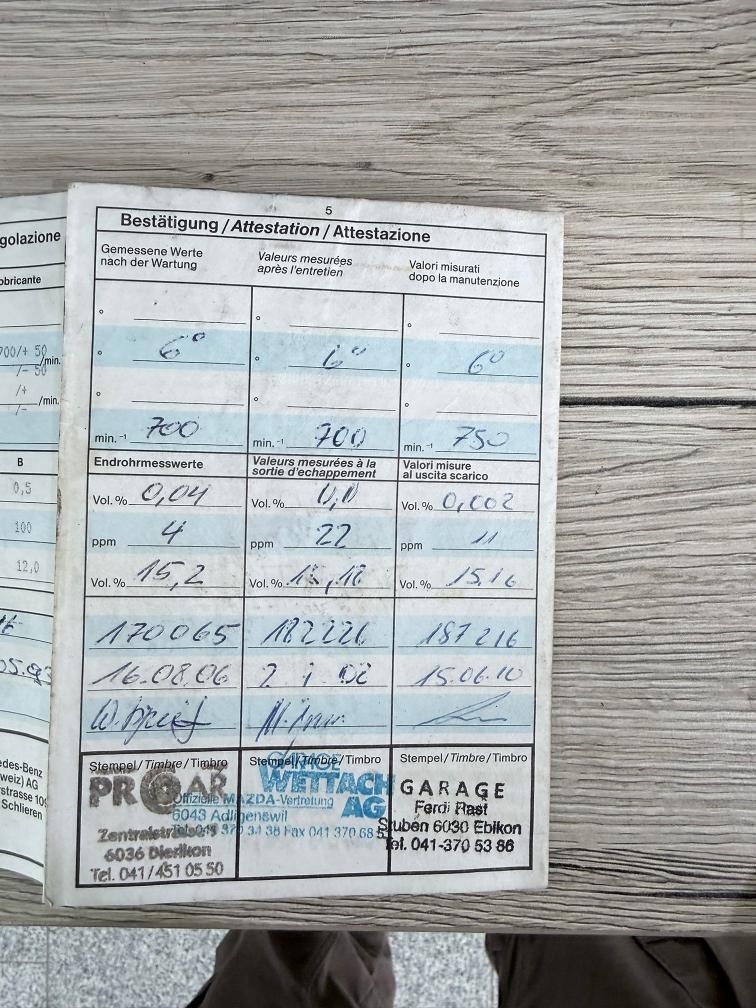 golazione
obricante
700/+ 50
/- 50 /min.
/+
/- /min.
B
0,5
100
12,0
05.93
edes-Benz
weiz) AG
rstrasse 109
Schlieren
5
Bestätigung / Attestation / Attestazione
Gemessene Werte
nach der Wartung
Valeurs mesurées
après l'entretien
Valori misurati
dopo la manutenzione
° ° °
° 6° ° 6° ° 6°
° ° °
min.⁻¹ 700 min.⁻¹ 700 min.⁻¹ 750
Endrohrmesswerte
Valeurs mesurées à la
sortie d'echappement
Valori misure
al uscita scarico
Vol.% 0,04 Vol.% Vol.% 0,002
ppm 4 ppm 22 ppm 11
Vol.% 15,2 Vol.% Vol.% 15.16
170065 182226 187216
16.08.06 15.06.10
Stempel/Timbre/Timbro Stempel/Timbre/Timbro Stempel/Timbre/Timbro
PROCAR
Zentralstrasse
6036 Dierikon
Tel. 041/451 05 50
GARAGE
WETTACH
AG
Offizielle MAZDA-Vertretung
6043 Adligenswil
Tel. 041 370 34 38 Fax 041 370 68 5
GARAGE
Ferdi Rast
Stuben 6030 Ebikon
Tel. 041-370 53 86